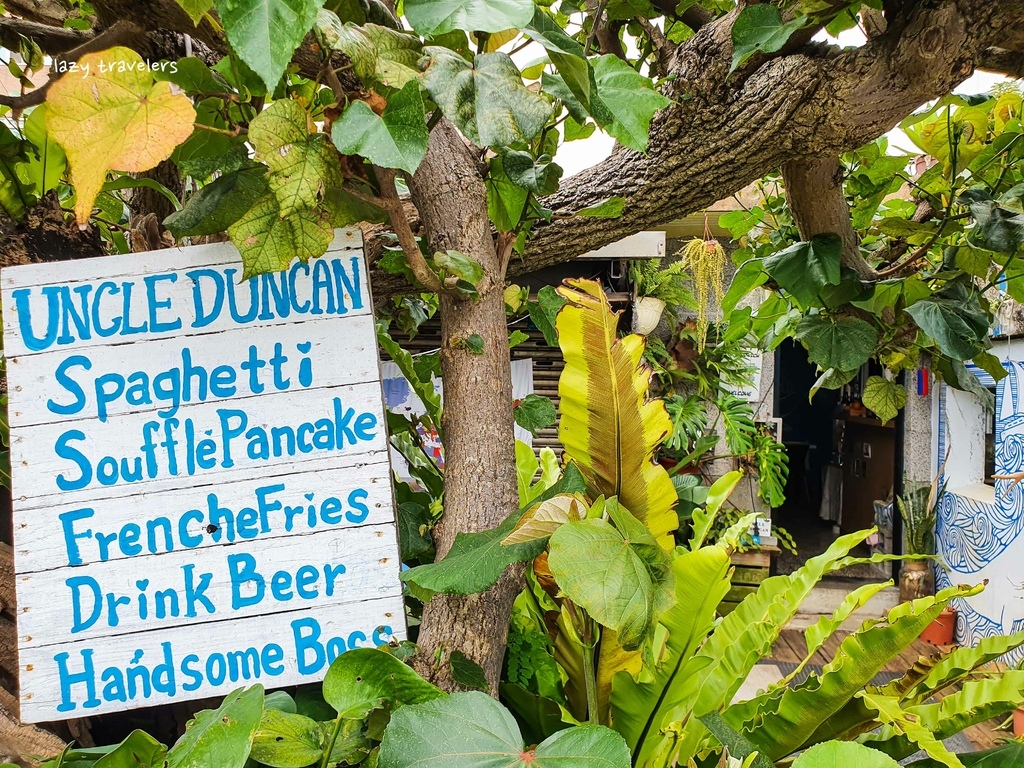 lazy travelers
UNCLE DUNCAN
Spaghetti
Soufflé Pancake
FrencheFries
Drink Beer
Handsome Boss
WELCOME